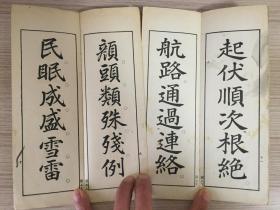 起伏順次根絶
航路通過連絡
額頭類殊殘例
民眠成盛雪雷